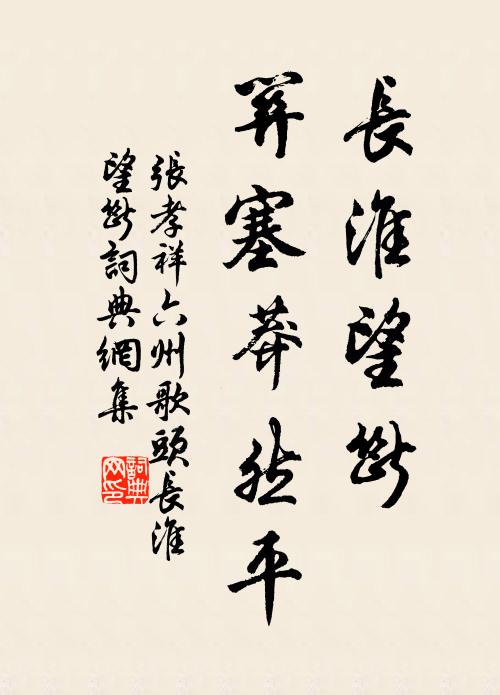 長淮望斷
關塞莽然平
張孝祥六州歌頭長淮
望斷詞典網集
詞典
网